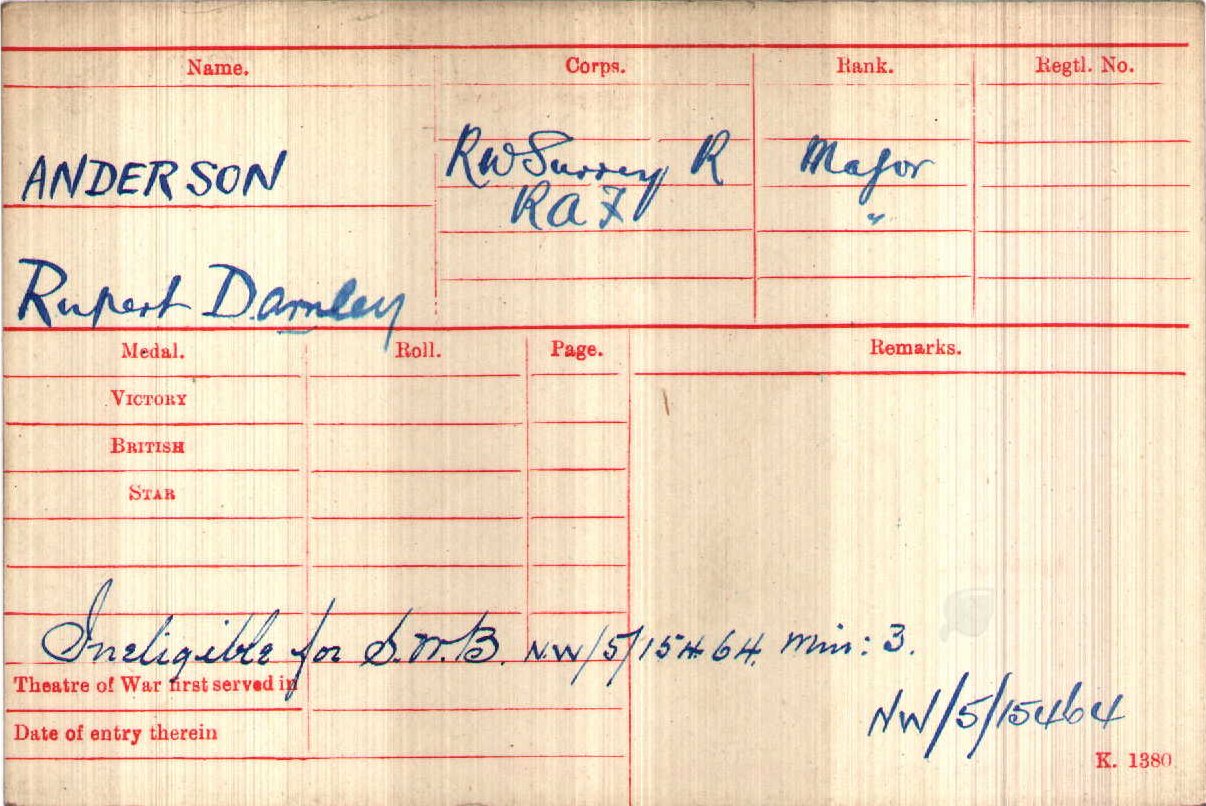 Name. Corps. Rank. Regtl. No.
ANDERSON R W Surrey R Major
RAF "
Rupert Darnley
Medal. Roll. Page. Remarks.
VICTORY
BRITISH
STAR
Ineligible for S.W.B. NW/5/15464. Min: 3.
Theatre of War first served in
NW/5/15464
Date of entry therein
K. 1380